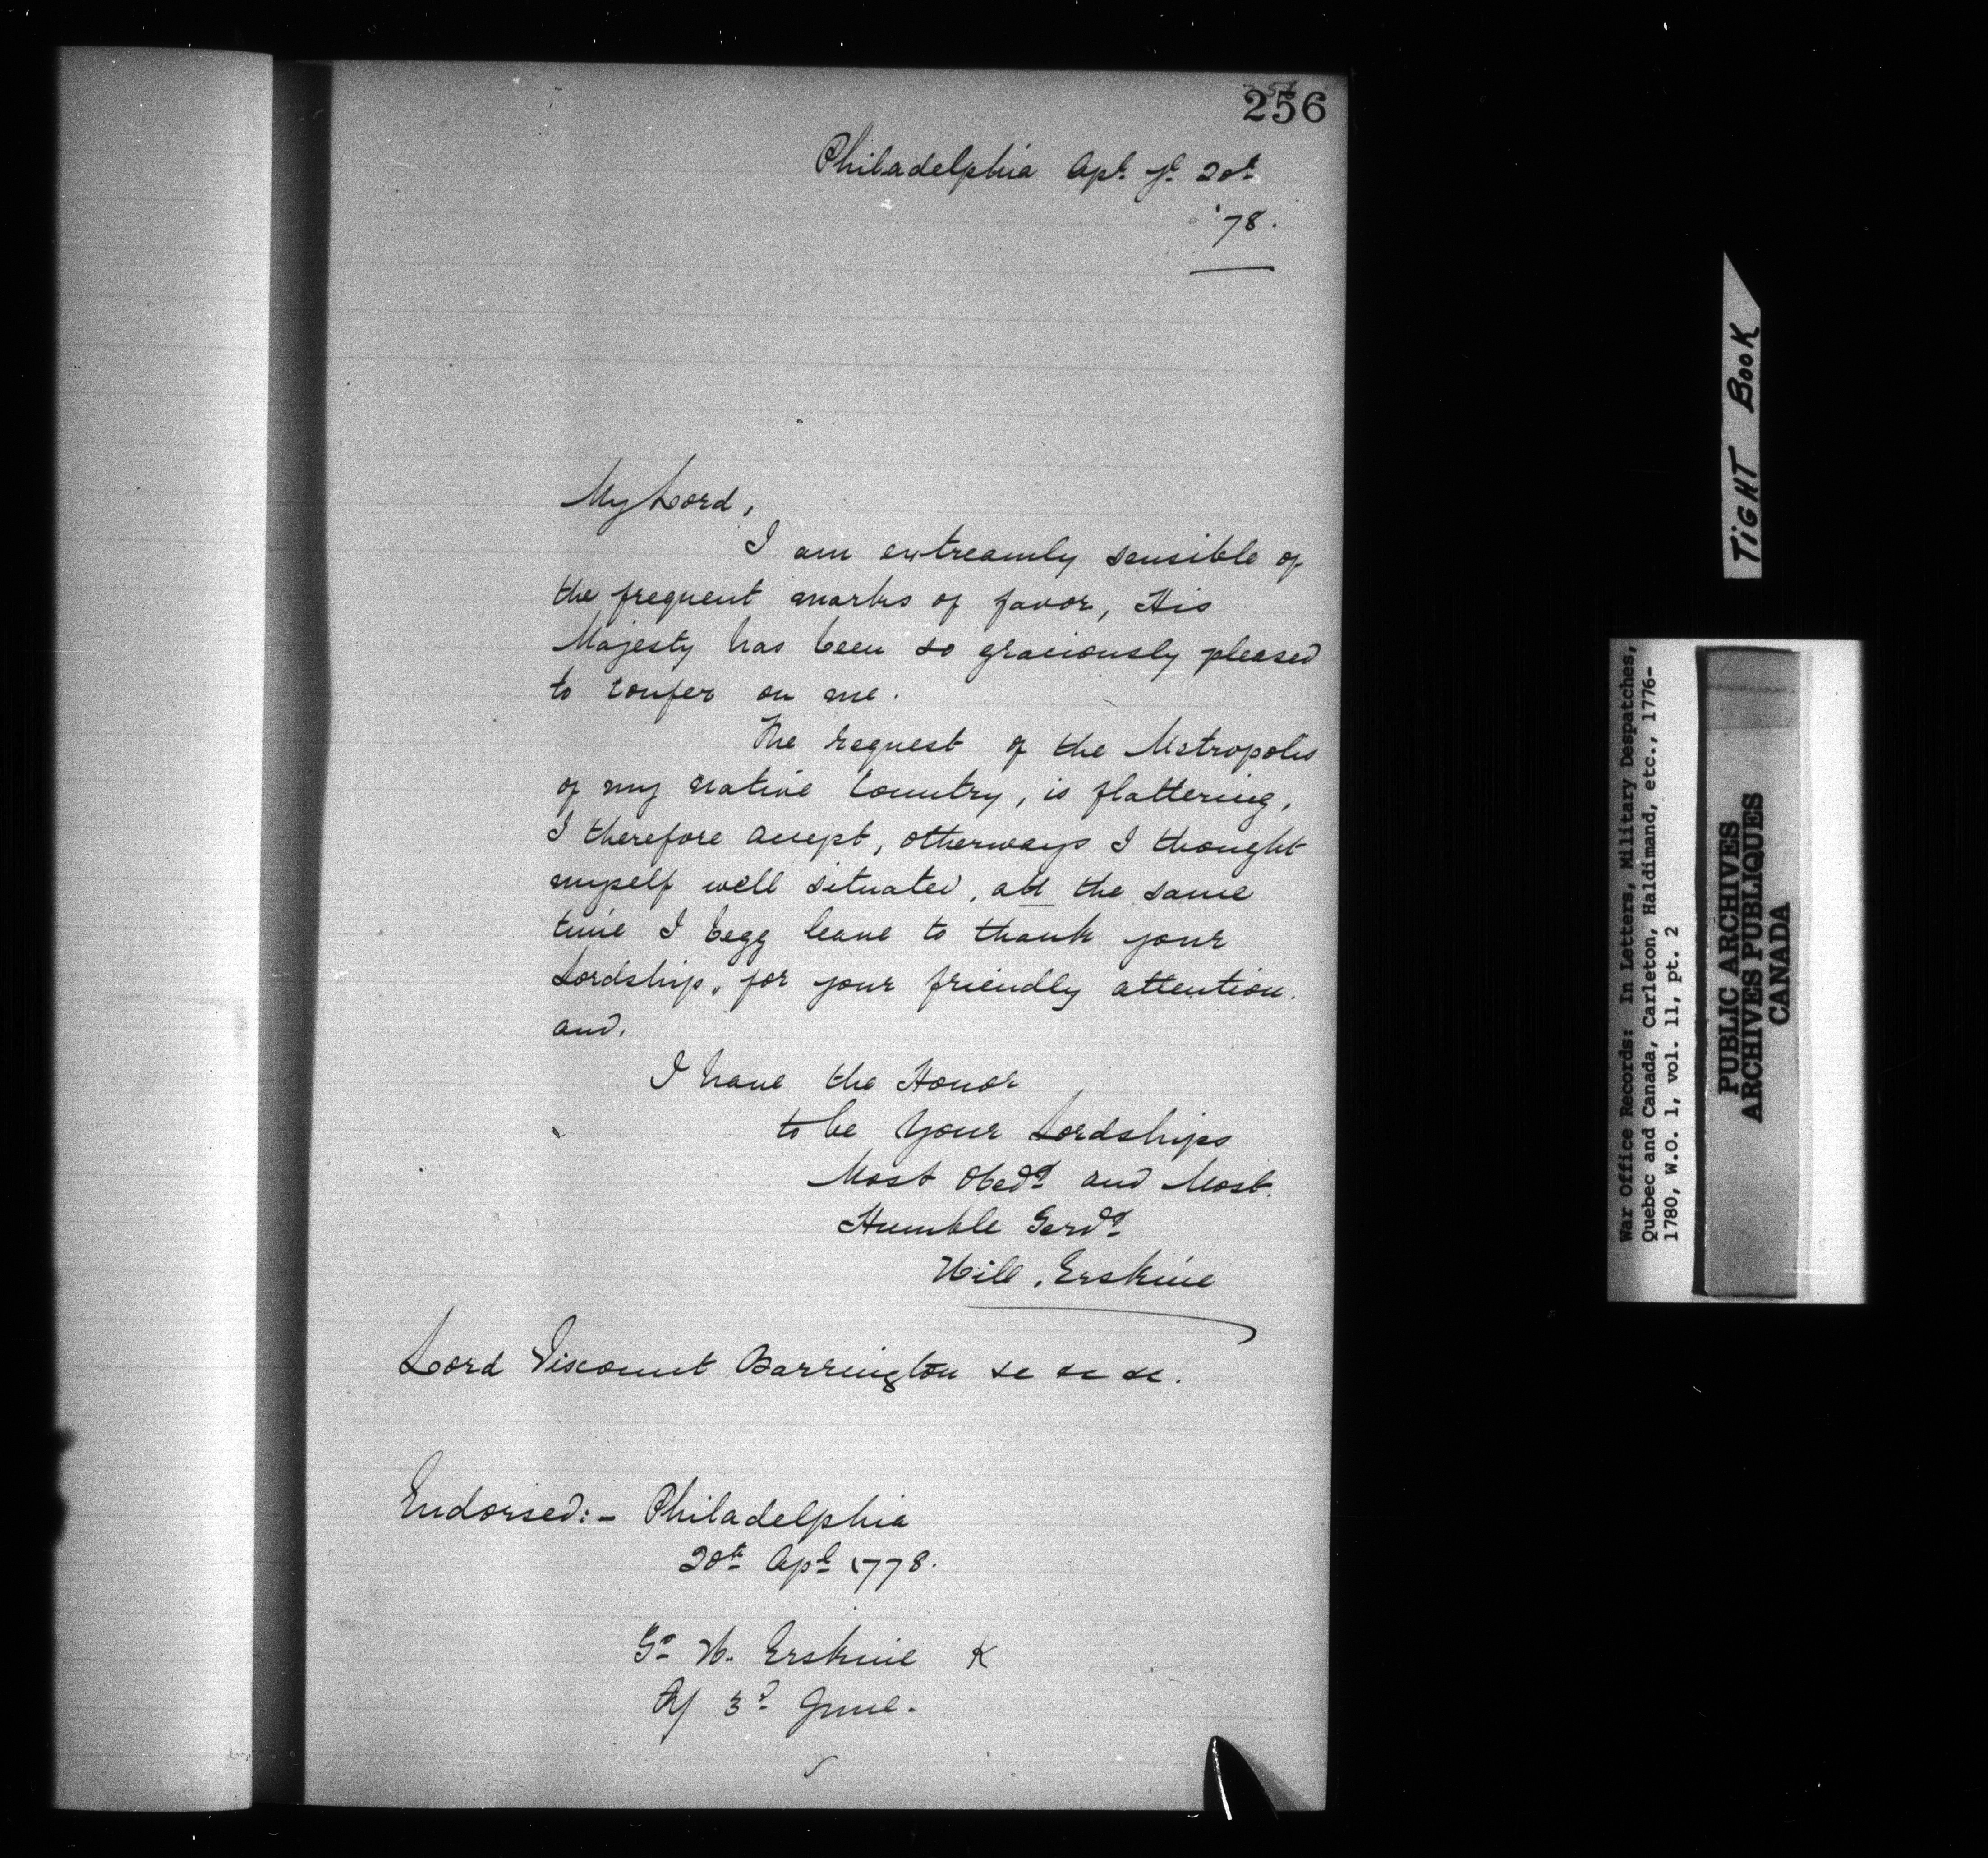 256
Philadelphia Apl. ye. 20th.
'78.
My Lord,
I am extreamly sensible of
the frequent marks of favor, His
Majesty has been so graciously pleased
to confer on me.
The request of the Metropolis
of my native Country, is flattering,
I therefore accept, otherways I thought
myself well situated, att the same
time I begg leave to thank your
Lordship, for your friendly attention.
and,
I have the Honor
to be Your Lordships
Most Obedt. and Most
Humble Servt.
Will. Erskine
Lord Viscount Barrington &c &c &c.
Endorsed:- Philadelphia
20th Apl. 1778.
Sr. W. Erskine K
3d. June.
TIGHT BOOK
War Office Records: In Letters, Military Despatches,
Quebec and Canada, Carleton, Haldimand, etc., 1776-
1780, W.O. 1, vol. 11, pt. 2
PUBLIC ARCHIVES
ARCHIVES PUBLIQUES
CANADA